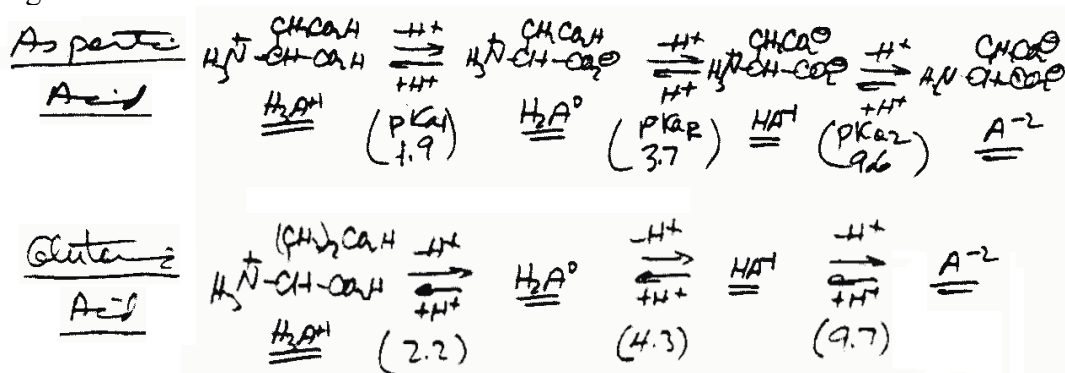 Aspartic H₃N⁺-CH-CO₂H CH₂CO₂H -H⁺ +H⁺ H₃N⁺-CH-CO₂⊖ CH₂CO₂H -H⁺ H⁺ H₃N⁺-CH-CO₂⊖ CH₂CO₂⊖ -H⁺ +H⁺ H₂N-CH-CO₂⊖ CH₂CO₂⊖
Acid H₃A⁺¹ (pKa1 1.9) H₂A⁰ (pKaR 3.7) HA⁻¹ (pKa2 9.6) A⁻²
Glutamic H₃N⁺-CH-CO₂H (CH₂)₂CO₂H -H⁺ +H⁺ H₂A⁰ -H⁺ +H⁺ HA⁻¹ -H⁺ +H⁺ A⁻²
Acid H₃A⁺¹ (2.2) (4.3) (9.7)